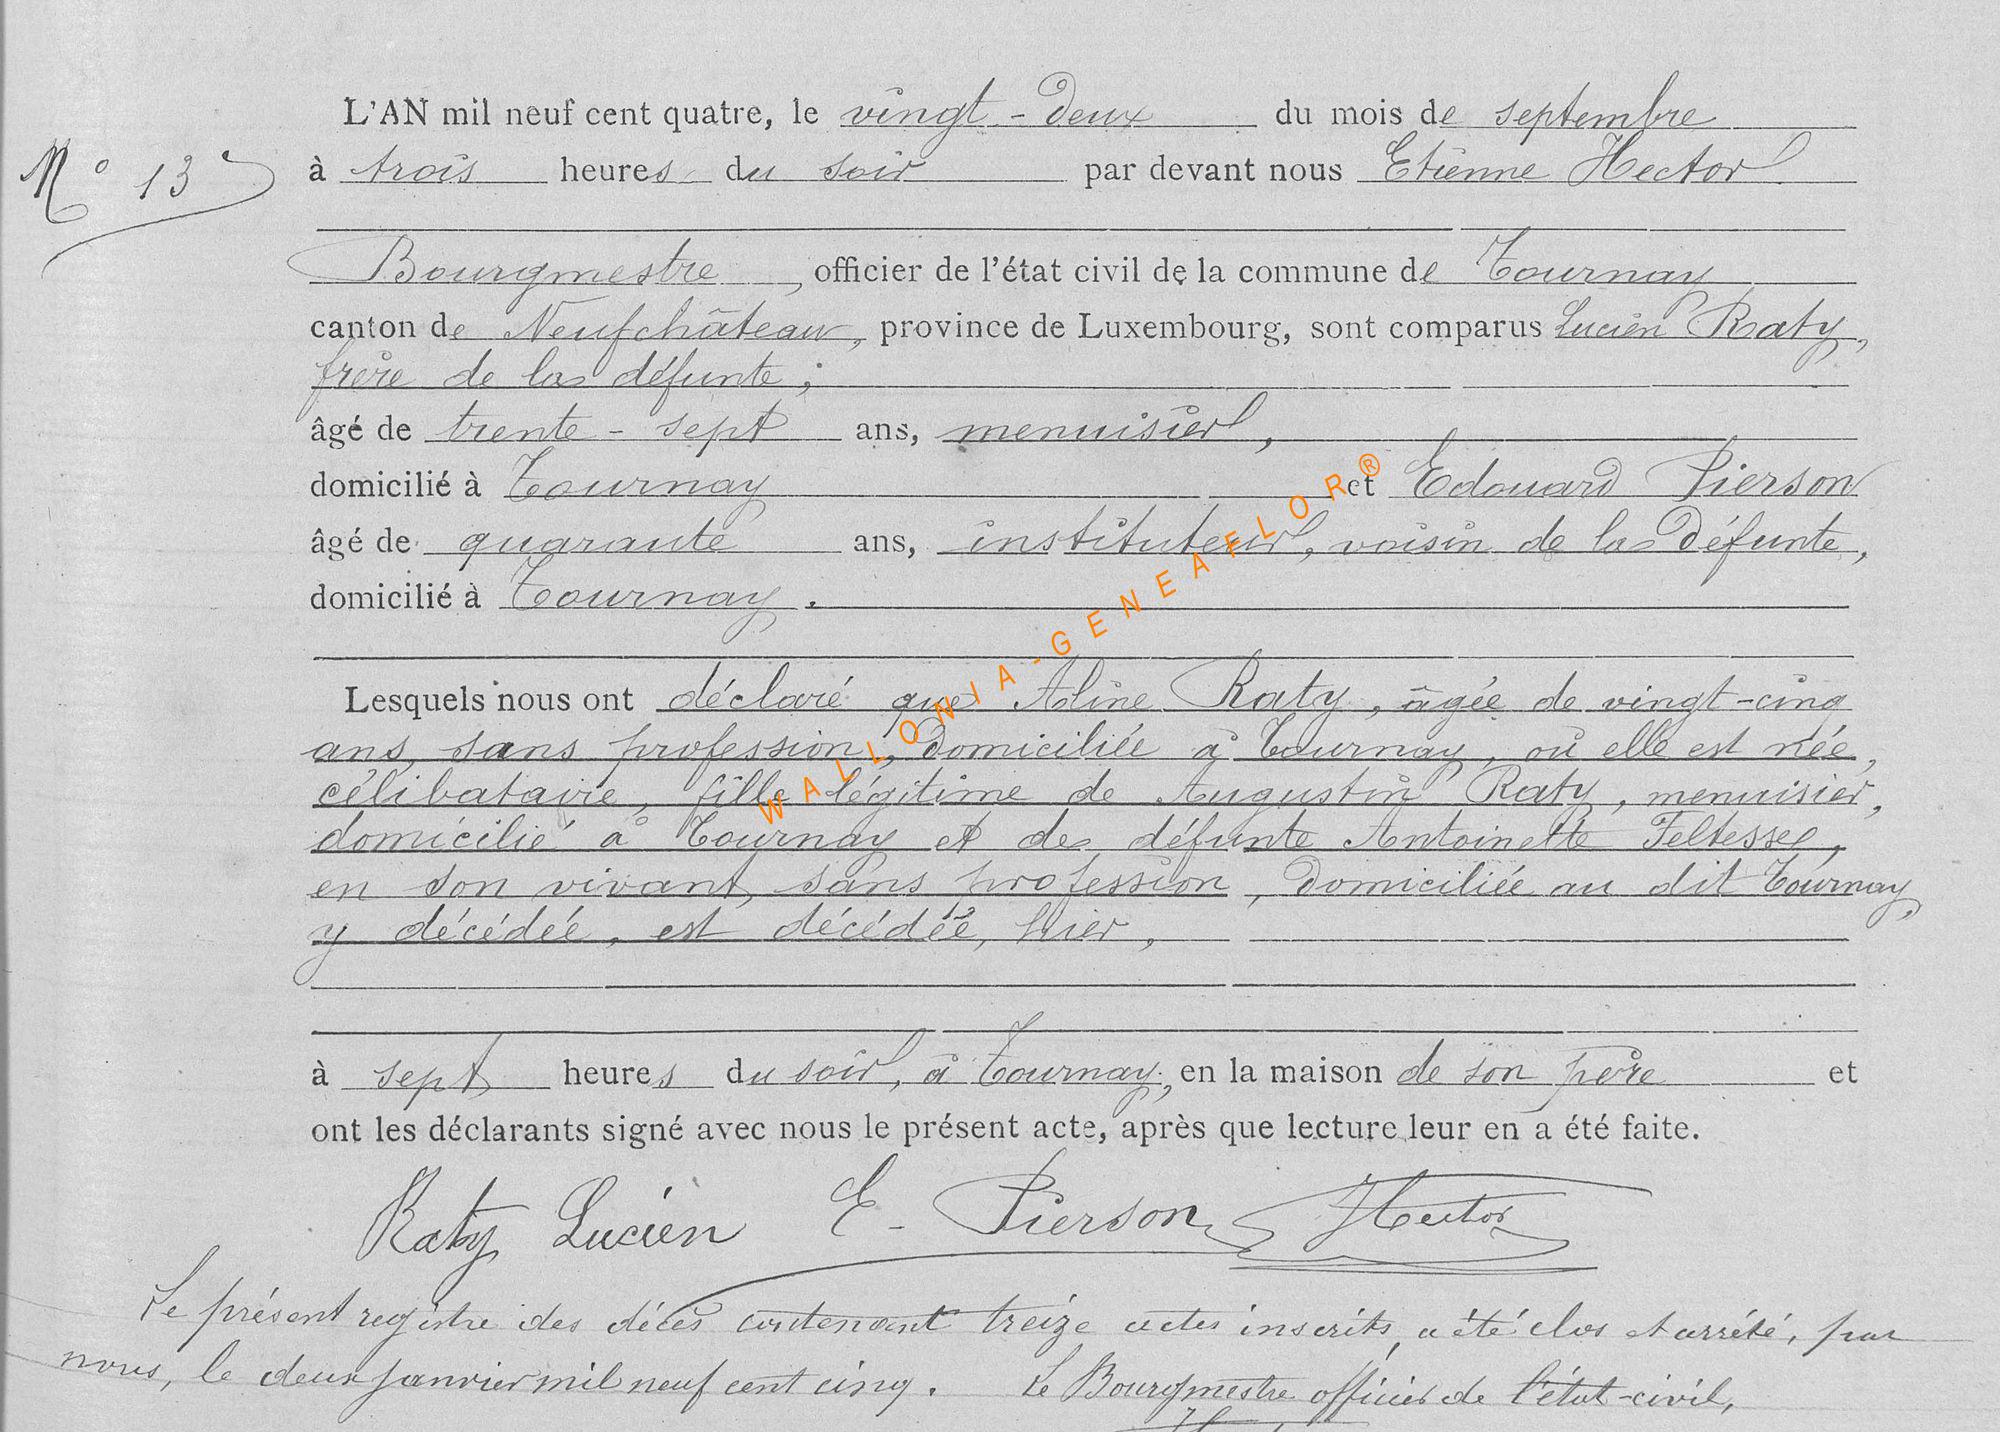 L'AN mil neuf cent quatre, le vingt-deux du mois de septembre
N° 13
à trois heures du soir par devant nous Etienne Hector
Bourgmestre, officier de l'état civil de la commune de Tournay
canton de Neufchâteau, province de Luxembourg, sont comparus Lucien Raty,
frère de la défunte;
âgé de trente-sept ans, menuisier,
domicilié à Tournay et Edouard Pierson
âgé de quarante ans, instituteur, voisin de la défunte,
domicilié à Tournay.
Lesquels nous ont déclaré que Aline Raty, âgée de vingt-cinq
ans, sans profession, domiciliée à Tournay, où elle est née,
célibataire, fille légitime de Augustin Raty, menuisier,
domicilié à Tournay et de défunte Antoinette Feltesse,
en son vivant, sans profession, domiciliée au dit Tournay,
y décédée, est décédée, hier,
à sept heures du soir, à Tournay, en la maison de son père et
ont les déclarants signé avec nous le présent acte, après que lecture leur en a été faite.
Raty Lucien E. Pierson Hector
Le présent registre des décès contenant treize actes inscrits, a été clos et arrêté, par
nous, le deux janvier mil neuf cent cinq. Le Bourgmestre officier de l'état-civil,
WALLONIA-GENEAFLOR®